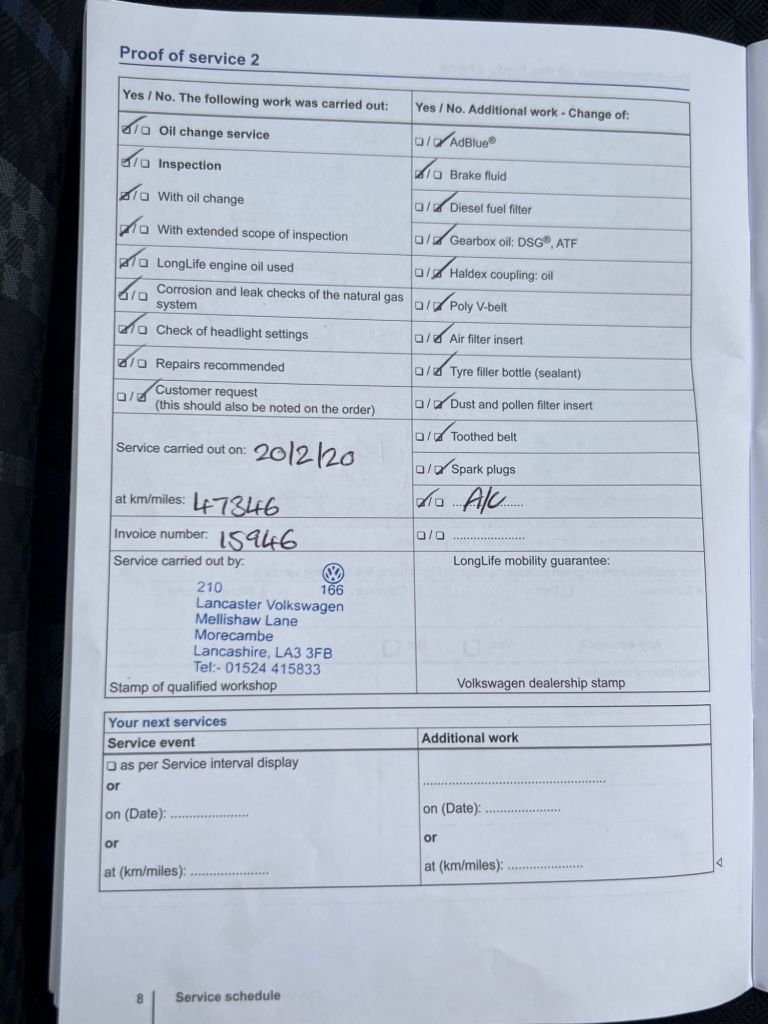 Proof of service 2
Yes / No. The following work was carried out:
☑/☐ Oil change service
☑/☐ Inspection
☑/☐ With oil change
☑/☐ With extended scope of inspection
☑/☐ LongLife engine oil used
☑/☐ Corrosion and leak checks of the natural gas
system
☑/☐ Check of headlight settings
☑/☐ Repairs recommended
☐/☑ Customer request
(this should also be noted on the order)
Service carried out on: 20/2/20
at km/miles: 47346
Invoice number: 15946
Yes / No. Additional work - Change of:
☐/☑ AdBlue®
☑/☐ Brake fluid
☐/☑ Diesel fuel filter
☐/☑ Gearbox oil: DSG®, ATF
☐/☑ Haldex coupling: oil
☐/☑ Poly V-belt
☐/☑ Air filter insert
☐/☑ Tyre filler bottle (sealant)
☐/☑ Dust and pollen filter insert
☐/☑ Toothed belt
☐/☑ Spark plugs
☑/☐ A/C
☐/☐ ......................
Service carried out by:
210 166
Lancaster Volkswagen
Mellishaw Lane
Morecambe
Lancashire, LA3 3FB
Tel:- 01524 415833
Stamp of qualified workshop
LongLife mobility guarantee:
Volkswagen dealership stamp
Your next services
Service event
☐ as per Service interval display
or
on (Date): ......................
or
at (km/miles): ......................
Additional work
......................................................
on (Date): ......................
or
at (km/miles): ......................
8 Service schedule